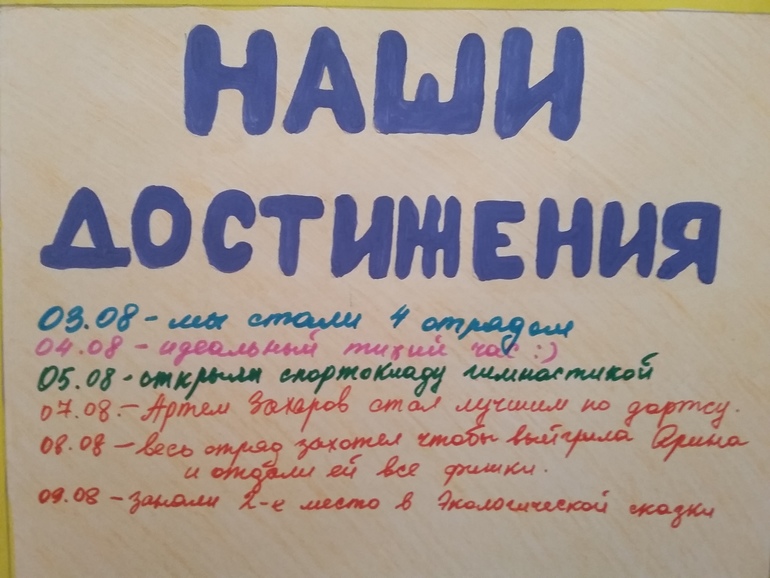 НАШИ
ДОСТИЖЕНИЯ
03.08 - мы стали 4 отрядом
04.08 - идеальный тихий час :)
05.08 - открыли спортокиаду гимнастикой
07.08. - Артем Захаров стал лучшим по дартсу.
08.08 - весь отряд захотел чтобы выйгрила Арина
и отдали ей все фишки.
09.08 - заняли 2-е место в Экологической сказки